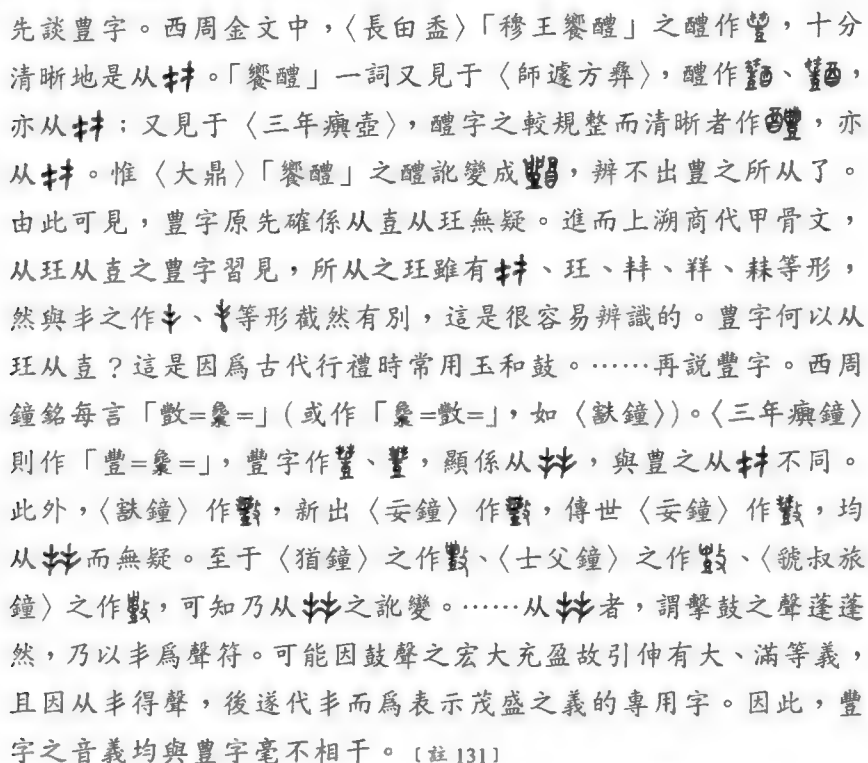 先談豊字。西周金文中，〈長甶盉〉「穆王饗醴」之醴作，十分
清晰地是从。「饗醴」一詞又見于〈師遽方彝〉，醴作、，
亦从；又見于〈三年𤼈壺〉，醴字之較規整而清晰者作，亦
从。惟〈大鼎〉「饗醴」之醴訛變成，辨不出豊之所从了。
由此可見，豊字原先確係从壴从玨無疑。進而上溯商代甲骨文，
从玨从壴之豊字習見，所从之玨雖有、玨、、、等形，
然與丰之作、等形截然有別，這是很容易辨識的。豊字何以从
玨从壴？這是因爲古代行禮時常用玉和鼓。……再說豐字。西周
鐘銘每言「=𱁱=」（或作「=數=」，如〈㝬鐘〉）。〈三年𤼈鐘〉
則作「豐==」，豐字作、，顯係从，與豊之从不同。
此外，〈㝬鐘〉作，新出〈妄鐘〉作，傳世〈妄鐘〉作，均
从而無疑。至于〈猶鐘〉之作、〈士父鐘〉之作、〈虢叔旅
鐘〉之作，可知乃从之訛變。……从者，謂擊鼓之聲蓬蓬
然，乃以丰爲聲符。可能因鼓聲之宏大充盈故引伸有大、滿等義，
且因从丰得聲，後遂代丰而爲表示茂盛之義的專用字。因此，豐
字之音義均與豊字毫不相干。[註131]